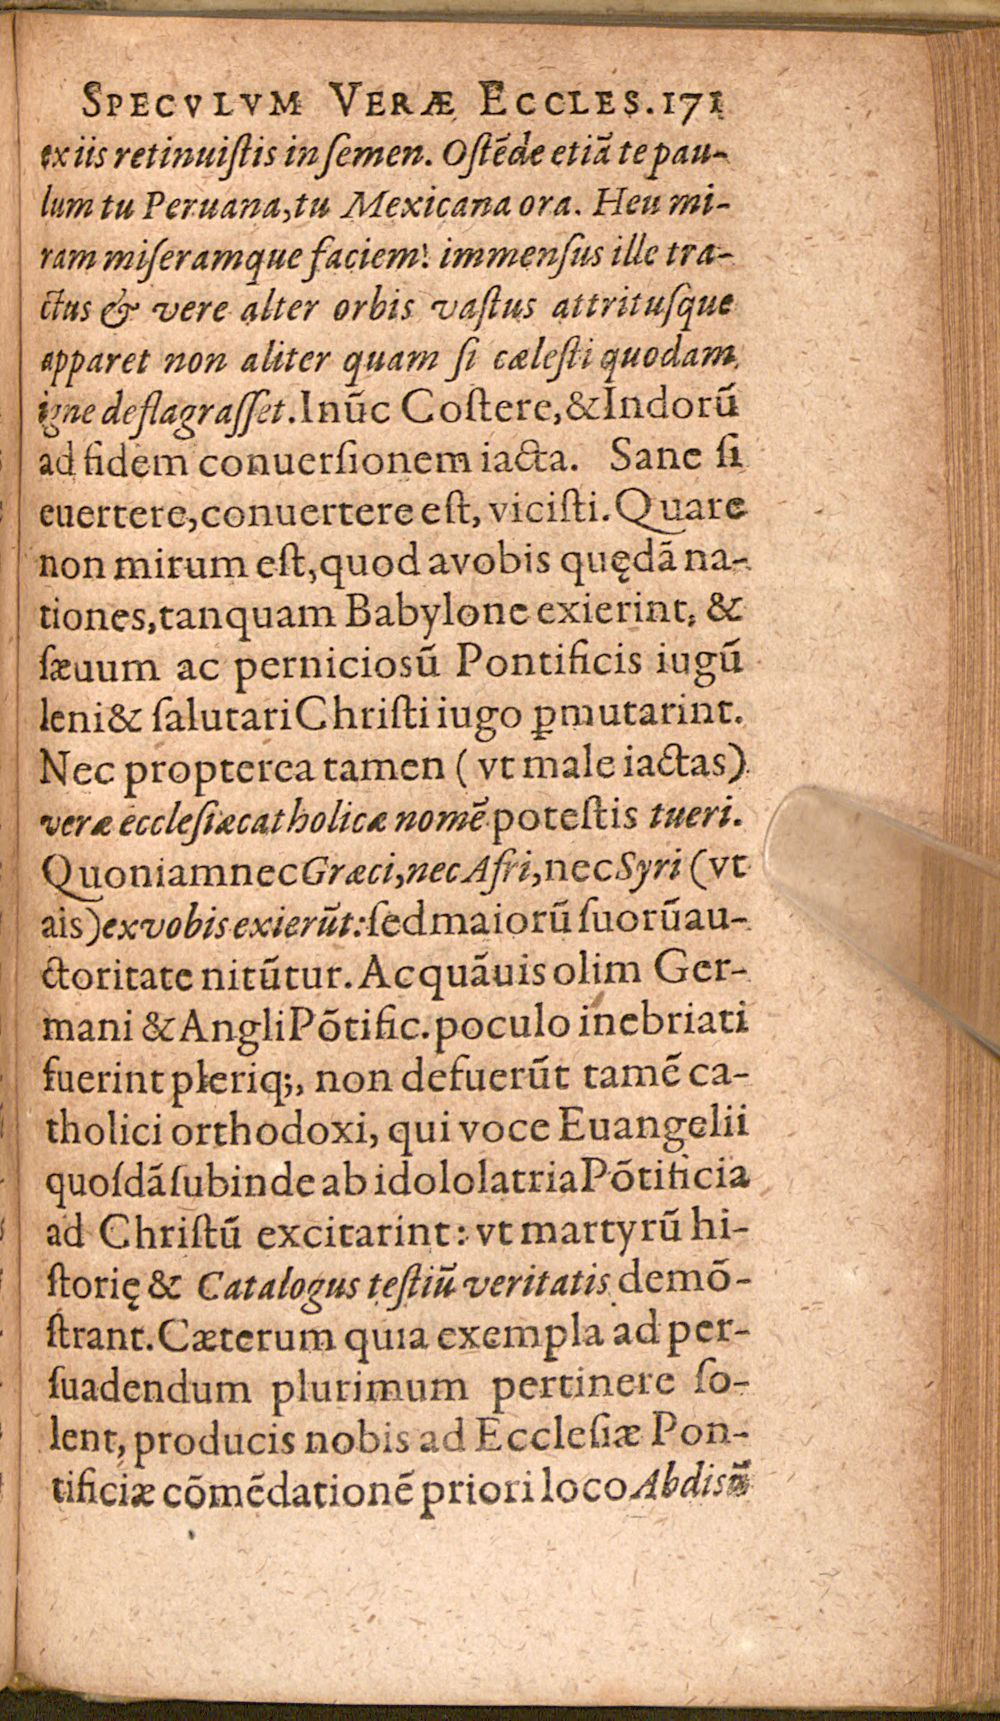 SPECVLVM VERÆ ECCLES. 171
ex iis retinuiſtis in ſemen. Oſtẽde etiã te pau-
lum tu Peruana, tu Mexicana ora. Heu mi-
ram miſeramque faciem! immenſus ille tra-
ctus & vere alter orbis vaſtus attrituſque
apparet non aliter quam ſi cæleſti quodam
igne deflagraſſet. I nũc Coſtere, & Indorũ
ad fidem conuerſionem iacta. Sane ſi
euertere, conuertere eſt, viciſti. Quare
non mirum eſt, quod a vobis quędã na-
tiones, tanquam Babylone exierint, &
ſæuum ac pernicioſũ Pontificis iugũ
leni & ſalutari Chriſti iugo ꝑmutarint.
Nec propterea tamen (vt male iactas)
veræ eccleſiæ catholicæ nomẽ poteſtis tueri.
Quoniam nec Græci, nec Afri, nec Syri (vt
ais) ex vobis exierũt: ſed maiorũ ſuorũ au-
ctoritate nitũtur. Ac quãuis olim Ger-
mani & Angli Põtific. poculo inebriati
fuerint pleriq;, non defuerũt tamẽ ca-
tholici orthodoxi, qui voce Euangelii
quoſdã ſubinde ab idololatria Põtificia
ad Chriſtũ excitarint: vt martyrũ hi-
ſtorię & Catalogus teſtiũ veritatis demõ-
ſtrant. Cæterum quia exempla ad per-
ſuadendum plurimum pertinere ſo-
lent, producis nobis ad Eccleſiæ Pon-
tificiæ cõmẽdationẽ priori loco Abdisũ